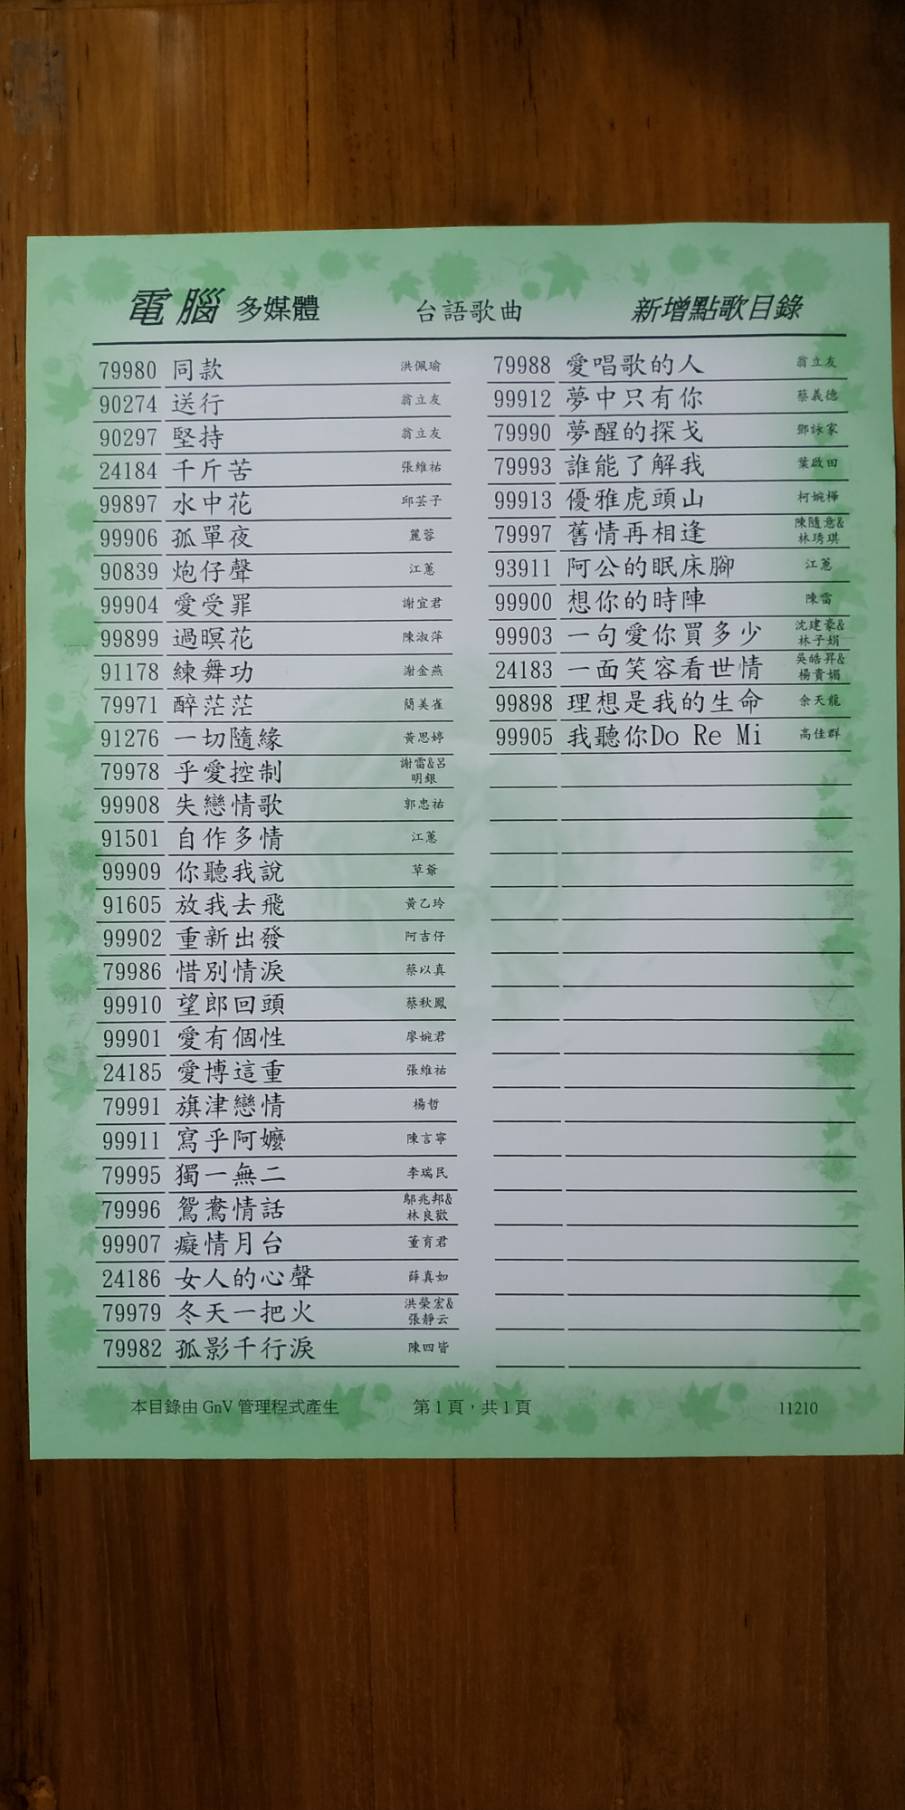 電腦 多媒體 台語歌曲 新增點歌目錄
79980 同款 洪佩瑜
90274 送行 翁立友
90297 堅持 翁立友
24184 千斤苦 張維祐
99897 水中花 邱芸子
99906 孤單夜 麗蓉
90839 炮仔聲 江蕙
99904 愛受罪 謝宜君
99899 過暝花 陳淑萍
91178 練舞功 謝金燕
79971 醉茫茫 簡美雀
91276 一切隨緣 黃思婷
79978 乎愛控制 謝雷&呂明銀
99908 失戀情歌 郭忠祐
91501 自作多情 江蕙
99909 你聽我說 草爺
91605 放我去飛 黃乙玲
99902 重新出發 阿吉仔
79986 惜別情淚 蔡以真
99910 望郎回頭 蔡秋鳳
99901 愛有個性 廖婉君
24185 愛博這重 張維祐
79991 旗津戀情 楊哲
99911 寫乎阿嬤 陳言寧
79995 獨一無二 李瑞民
79996 鴛鴦情話 鄔兆邦&林良歡
99907 癡情月台 董育君
24186 女人的心聲 薛真如
79979 冬天一把火 洪榮宏&張靜云
79982 孤影千行淚 陳四皆
79988 愛唱歌的人 翁立友
99912 夢中只有你 蔡義德
79990 夢醒的探戈 鄧詠家
79993 誰能了解我 葉啟田
99913 優雅虎頭山 柯婉樺
79997 舊情再相逢 陳隨意&林琇琪
93911 阿公的眠床腳 江蕙
99900 想你的時陣 陳雷
99903 一句愛你買多少 沈建豪&林子娟
24183 一面笑容看世情 吳皓昇&楊貴媚
99898 理想是我的生命 余天龍
99905 我聽你Do Re Mi 高佳群
本目錄由 GnV 管理程式產生 第1頁,共1頁 11210